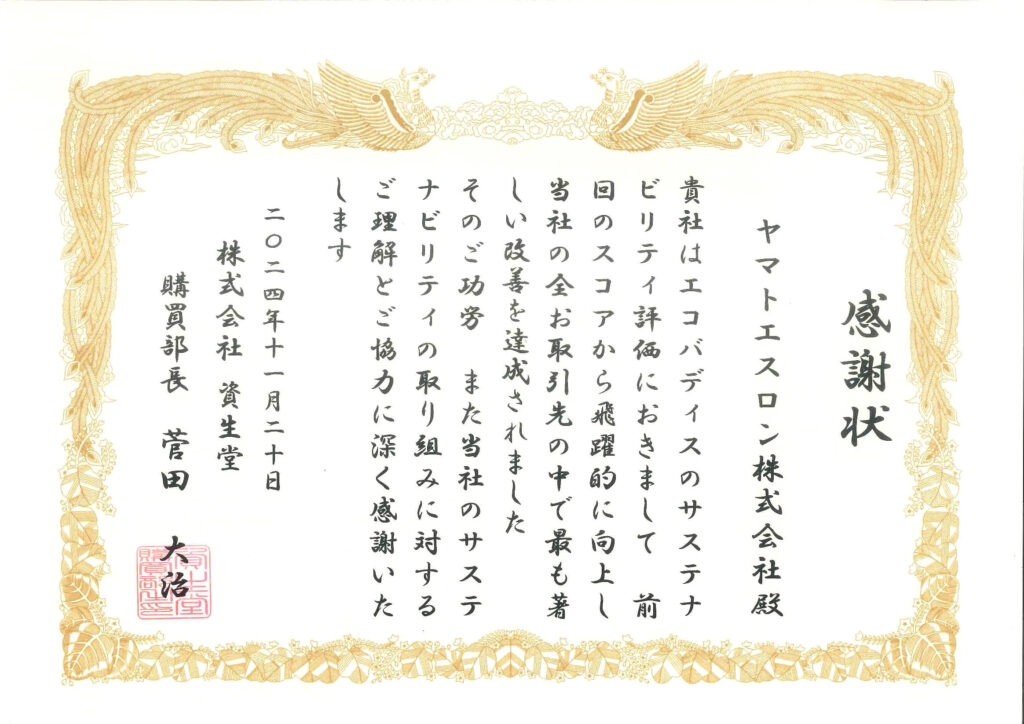 感謝状
ヤマトエスロン株式会社殿
貴社はエコバディスのサステナ
ビリティ評価におきまして 前
回のスコアから飛躍的に向上し
当社の全お取引先の中で最も著
しい改善を達成されました
そのご功労 また当社のサステ
ナビリティの取り組みに対する
ご理解とご協力に深く感謝いた
します
二〇二四年十一月二十日
株式会社 資生堂
購買部長 菅田 大治